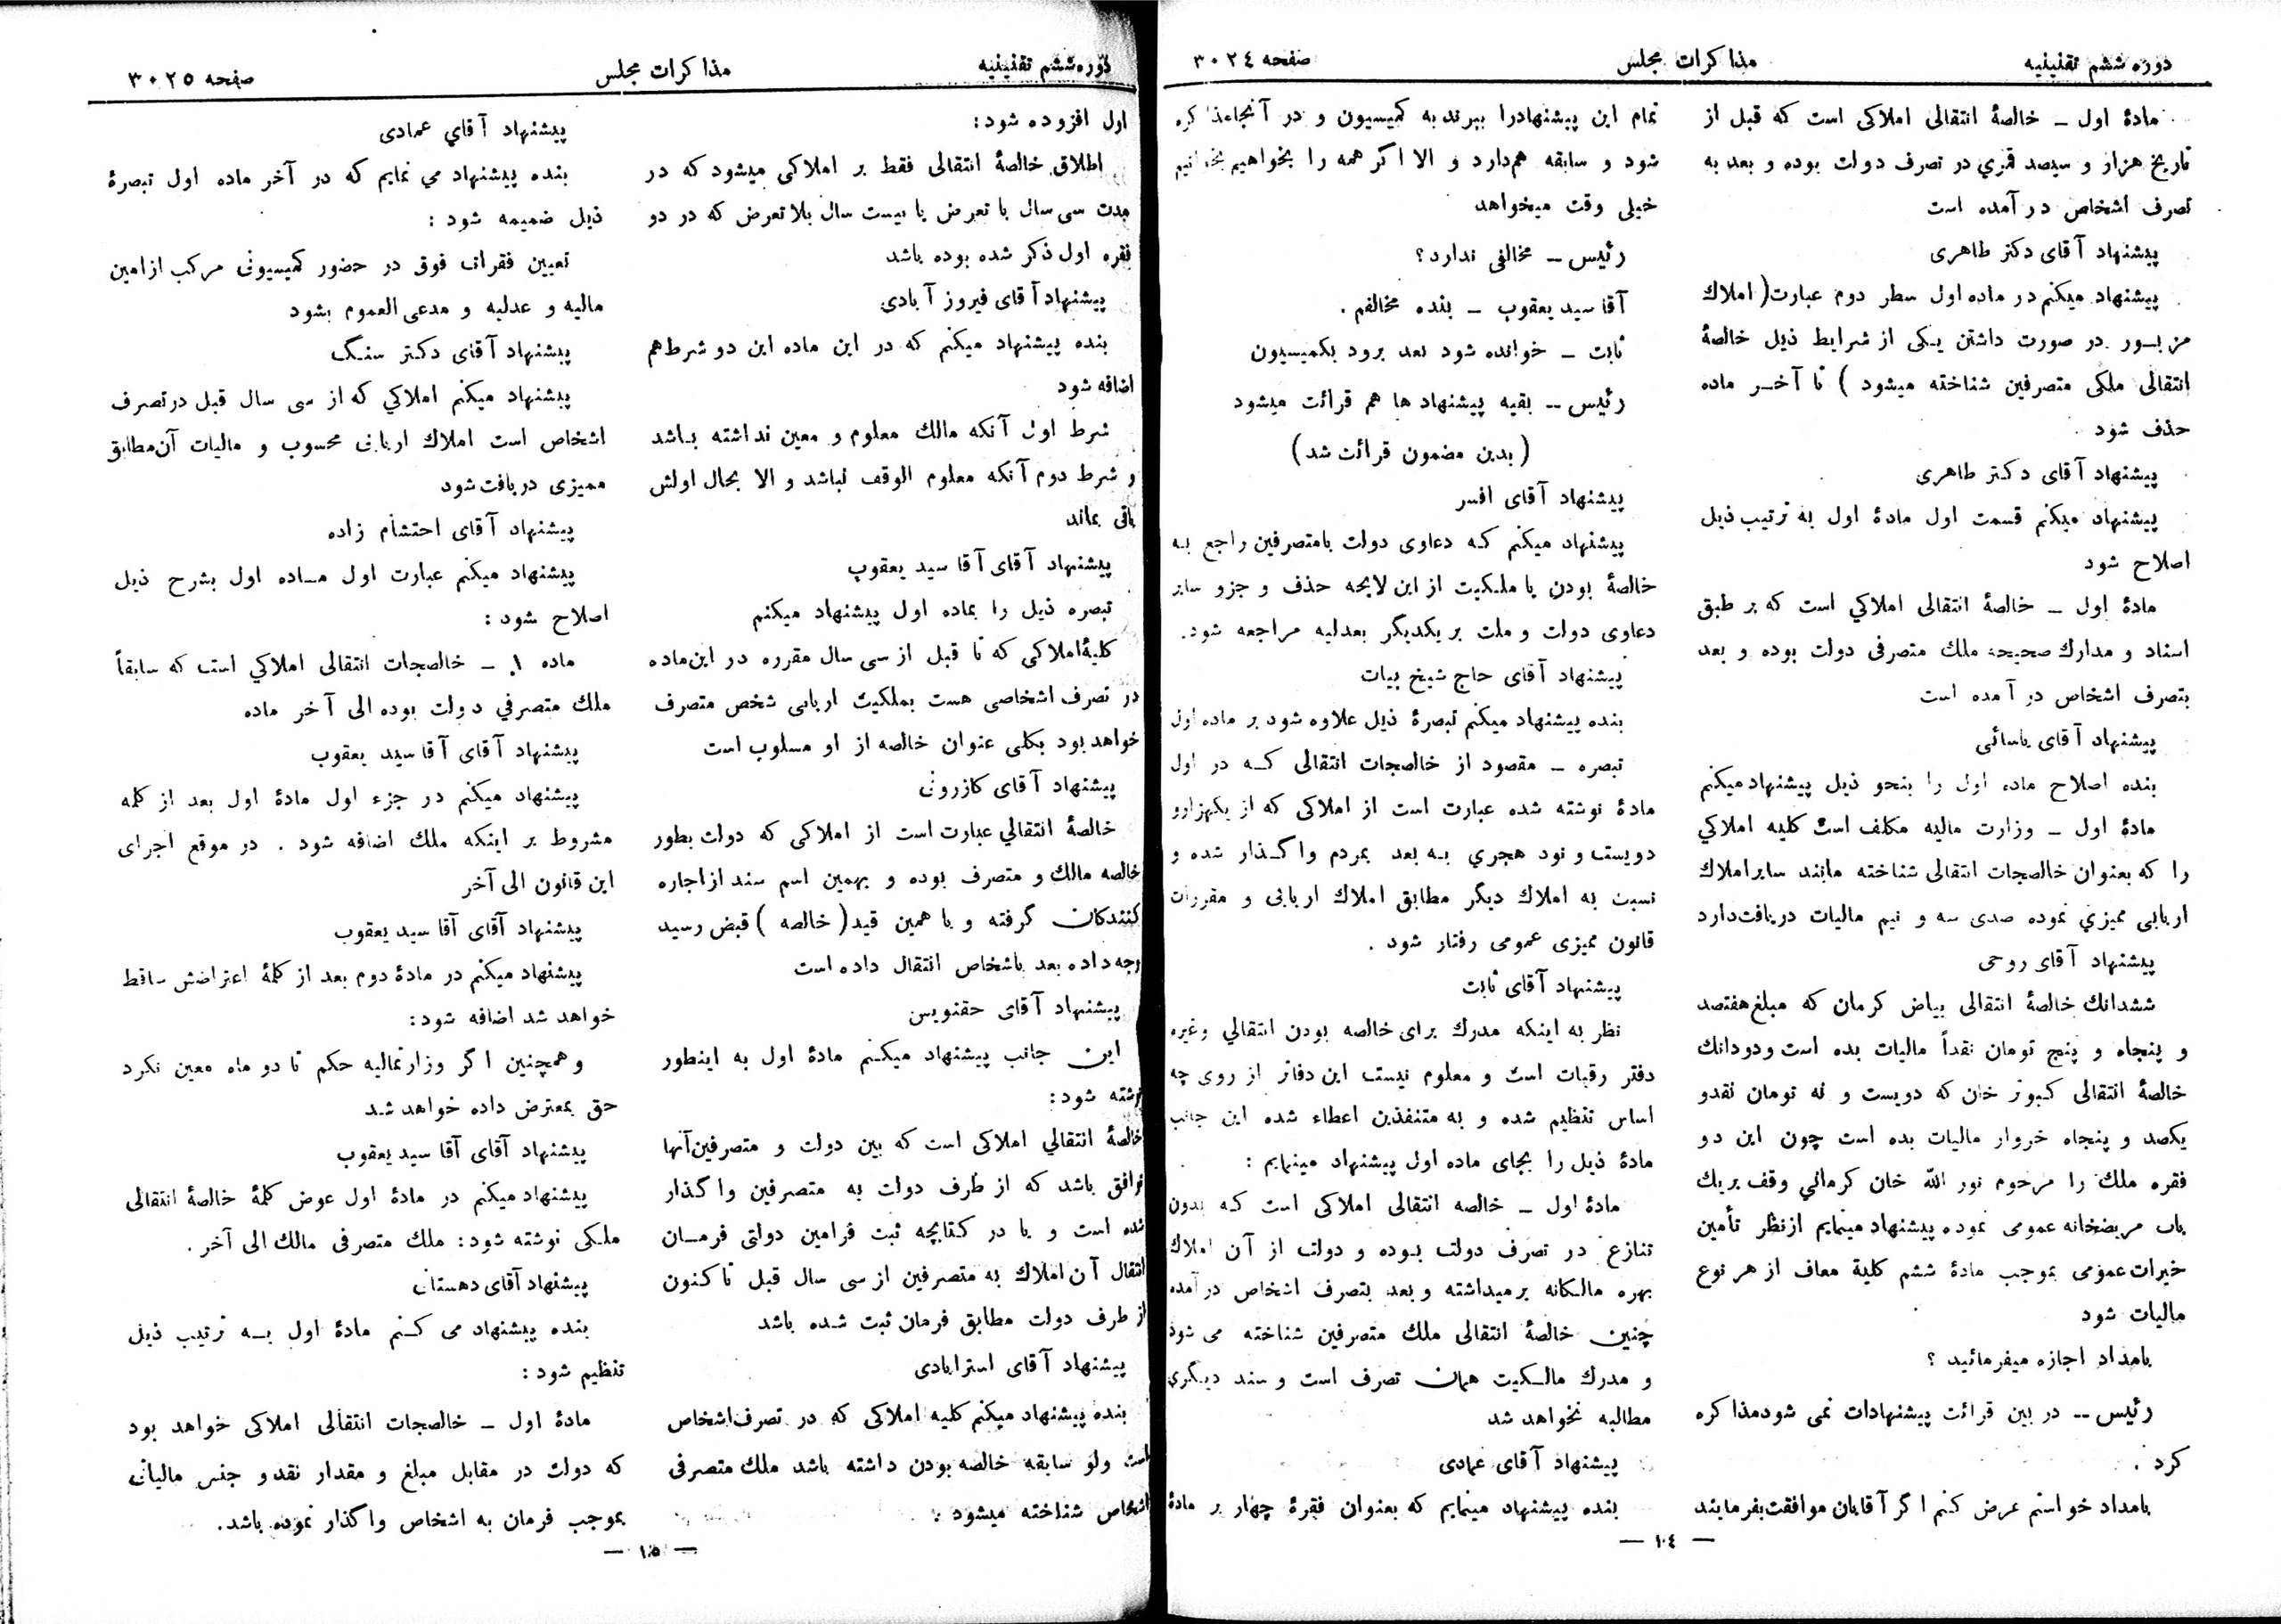 دوره ششم تقنینیه
مذاکرات مجلس
صفحه ۳۰۲٤
مادهٔ اول ــ خالصهٔ انتقالی املاکی است که قبل از
تاریخ هزار و سیصد قمری در تصرف دولت بوده و بعد به
تصرف اشخاص در آمده است
پیشنهاد آقای دکتر طاهری
پیشنهاد میکنم در ماده اول سطر دوم عبارت (املاک
مزبور در صورت داشتن یکی از شرایط ذیل خالصهٔ
انتقالی ملکی متصرفین شناخته میشود ) تا آخر ماده
حذف شود
پیشنهاد آقای دکتر طاهری
پیشنهاد میکنم قسمت اول مادهٔ اول به ترتیب ذیل
اصلاح شود
مادهٔ اول ــ خالصهٔ انتقالی املاکی است که بر طبق
اسناد و مدارک صحیحه ملک متصرفی دولت بوده و بعد
بتصرف اشخاص در آمده است
پیشنهاد آقای یاسائی
بنده اصلاح ماده اول را بنحو ذیل پیشنهاد میکنم
مادهٔ اول ــ وزارت مالیه مکلف است کلیه املاکی
را که بعنوان خالصجات انتقالی شناخته مانند سایر املاک
اربابی ممیزی نموده صدی سه و نیم مالیات دریافت دارد
پیشنهاد آقای روحی
ششدانک خالصهٔ انتقالی بیاض کرمان که مبلغ هفتصد
و پنجاه و پنج تومان نقداً مالیات بده است و دودانک
خالصهٔ انتقالی کبوتر خان که دویست و نه تومان نقد و
یکصد و پنجاه خروار مالیات بده است چون این دو
فقره ملک را مرحوم نور الله خان کرمانی وقف بر یک
باب مریضخانه عمومی نموده پیشنهاد مینمایم از نظر تأمین
خیرات عمومی بموجب مادهٔ ششم کلیهٔ معاف از هر نوع
مالیات شود
بامداد اجازه میفرمائید ؟
رئیس ــ در بین قرائت پیشنهادات نمی شود مذاکره
کرد .
بامداد خواستم عرض کنم اگر آقایان موافقت بفرمایند
تمام این پیشنهادرا ببرند به کمیسیون و در آنجا مذاکره
شود و سابقه هم دارد و الا اگر همه را بخواهیم بخوانیم
خیلی وقت میخواهد
رئیس ــ مخالفی ندارد؟
آقا سید یعقوب ــ بنده مخالفم .
ثابت ــ خوانده شود بعد برود بکمیسیون
رئیس ــ بقیه پیشنهاد ها هم قرائت میشود
(بدین مضمون قرائت شد)
پیشنهاد آقای افسر
پیشنهاد میکنم که دعاوی دولت بامتصرفین راجع به
خالصهٔ بودن یا ملکیت از این لایحه حذف و جزو سایر
دعاوی دولت و ملت بر یکدیگر بعدلیه مراجعه شود.
پیشنهاد آقای حاج شیخ بیات
بنده پیشنهاد میکنم تبصرهٔ ذیل علاوه شود بر ماده اول
تبصره ــ مقصود از خالصجات انتقالی که در اول
مادهٔ نوشته شده عبارت است از املاکی که از یکهزار و
دویست و نود هجری به بعد بمردم واگذار شده و
نسبت به املاک دیگر مطابق املاک اربابی و مقررات
قانون ممیزی عمومی رفتار شود .
پیشنهاد آقای ثابت
نظر به اینکه مدرک برای خالصه بودن انتقالی وغیره
دفتر رقبات است و معلوم نیست این دفاتر از روی چه
اساس تنظیم شده و به متنفذین اعطاء شده این جانب
مادهٔ ذیل را بجای ماده اول پیشنهاد مینمایم :
مادهٔ اول ــ خالصه انتقالی املاکی است که بدون
تنازع در تصرف دولت بوده و دولت از آن املاک
بهره مالکانه بر میداشته و بعد بتصرف اشخاص در آمده
چنین خالصهٔ انتقالی ملک متصرفین شناخته می شود
و مدرک مالکیت همان تصرف است و سند دیگری
مطالبه نخواهد شد
پیشنهاد آقای عمادی
بنده پیشنهاد مینمایم که بعنوان فقرهٔ چهار بر مادهٔ
— ۱۰٤ —
دوره ششم تقنینیه
مذاکرات مجلس
صفحه ۳۰۲۵
اول افزوده شود:
اطلاق خالصهٔ انتقالی فقط بر املاکی میشود که در
مدت سی سال با تعرض یا بیست سال بلا تعرض که در دو
فقره اول ذکر شده بوده باشد
پیشنهاد آقای فیروز آبادی
بنده پیشنهاد میکنم که در این ماده این دو شرط هم
اضافه شود
شرط اول آنکه مالک معلوم و معین نداشته باشد
و شرط دوم آنکه معلوم الوقف نباشد و الا بحال اولش
باقی بماند
پیشنهاد آقای آقا سید یعقوب
تبصره ذیل را بماده اول پیشنهاد میکنم
کلیهٔ املاکی که تا قبل از سی سال مقرره در این ماده
در تصرف اشخاصی هست بملکیت اربابی شخص متصرف
خواهد بود بکلی عنوان خالصه از او مسلوب است
پیشنهاد آقای کازرونی
خالصهٔ انتقالی عبارت است از املاکی که دولت بطور
خالصه مالک و متصرف بوده و بهمین اسم سند از اجاره
کنندکان گرفته و با همین قید (خالصه ) قبض رسید
وجه داده بعد باشخاص انتقال داده است
پیشنهاد آقای حقنویس
این جانب پیشنهاد میکنم مادهٔ اول به اینطور
نوشته شود:
خالصهٔ انتقالی املاکی است که بین دولت و متصرفین آنها
توافق باشد که از طرف دولت به متصرفین واگذار
شده است و یا در کتابچه ثبت فرامین دولتی فرمان
انتقال آن املاک به متصرفین از سی سال قبل تاکنون
از طرف دولت مطابق فرمان ثبت شده باشد
پیشنهاد آقای استرابادی
بنده پیشنهاد میکنم کلیه املاکی که در تصرف اشخاص
است ولو سابقه خالصه بودن داشته باشد ملک متصرفی
اشخاص شناخته میشود .
پیشنهاد آقای عمادی
بنده پیشنهاد می نمایم که در آخر ماده اول تبصرهٔ
ذیل ضمیمه شود :
تعیین فقرات فوق در حضور کمیسیونی مرکب از امین
مالیه و عدلیه و مدعی العموم بشود
پیشنهاد آقای دکتر سنگ
پیشنهاد میکنم املاکی که از سی سال قبل در تصرف
اشخاص است املاک اربابی محسوب و مالیات آن مطابق
ممیزی دریافت شود
پیشنهاد آقای احتشام زاده
پیشنهاد میکنم عبارت اول ماده اول بشرح ذیل
اصلاح شود :
ماده ۱ ــ خالصجات انتقالی املاکی است که سابقاً
ملک متصرفی دولت بوده الی آخر ماده
پیشنهاد آقای آقا سید یعقوب
پیشنهاد میکنم در جزء اول مادهٔ اول بعد از کلمه
مشروط بر اینکه ملک اضافه شود . در موقع اجرای
این قانون الی آخر
پیشنهاد آقای آقا سید یعقوب
پیشنهاد میکنم در مادهٔ دوم بعد از کلمهٔ اعتراضش ساقط
خواهد شد اضافه شود:
و همچنین اگر وزارتمالیه حکم تا دو ماه معین نکرد
حق بمعترض داده خواهد شد
پیشنهاد آقای آقا سید یعقوب
پیشنهاد میکنم در مادهٔ اول عوض کلمهٔ خالصهٔ انتقالی
ملکی نوشته شود: ملک متصرفی مالک الی آخر .
پیشنهاد آقای دهستانی
بنده پیشنهاد می کنم مادهٔ اول به ترتیب ذیل
تنظیم شود :
مادهٔ اول ــ خالصجات انتقالی املاکی خواهد بود
که دولت در مقابل مبلغ و مقدار نقد و جنس مالیاتی
بموجب فرمان به اشخاص واگذار نموده باشد.
— ۱۰۵ —